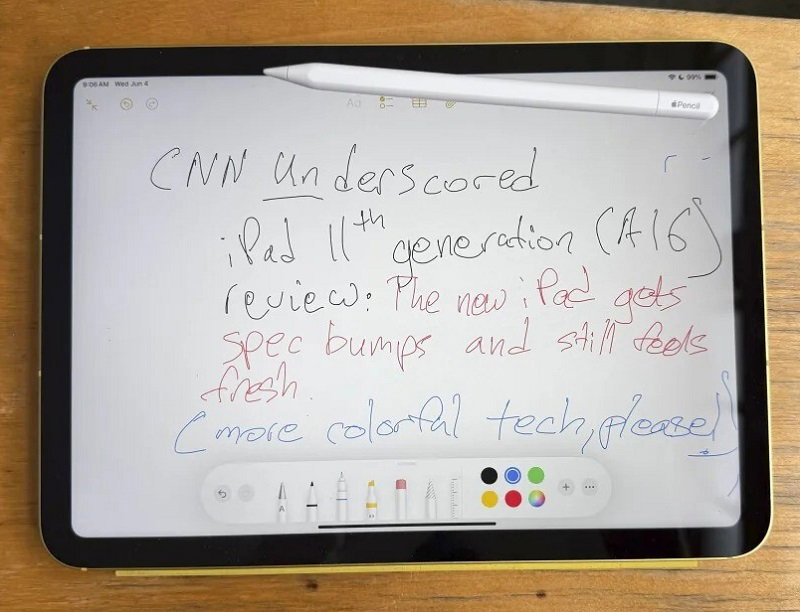 9:06 AM Wed Jun 4
99%
Aa
Pencil
CNN Underscored
iPad 11th generation (A16)
review: The new iPad gets
spec bumps and still feels
fresh.
(more colorful tech, please!)
A